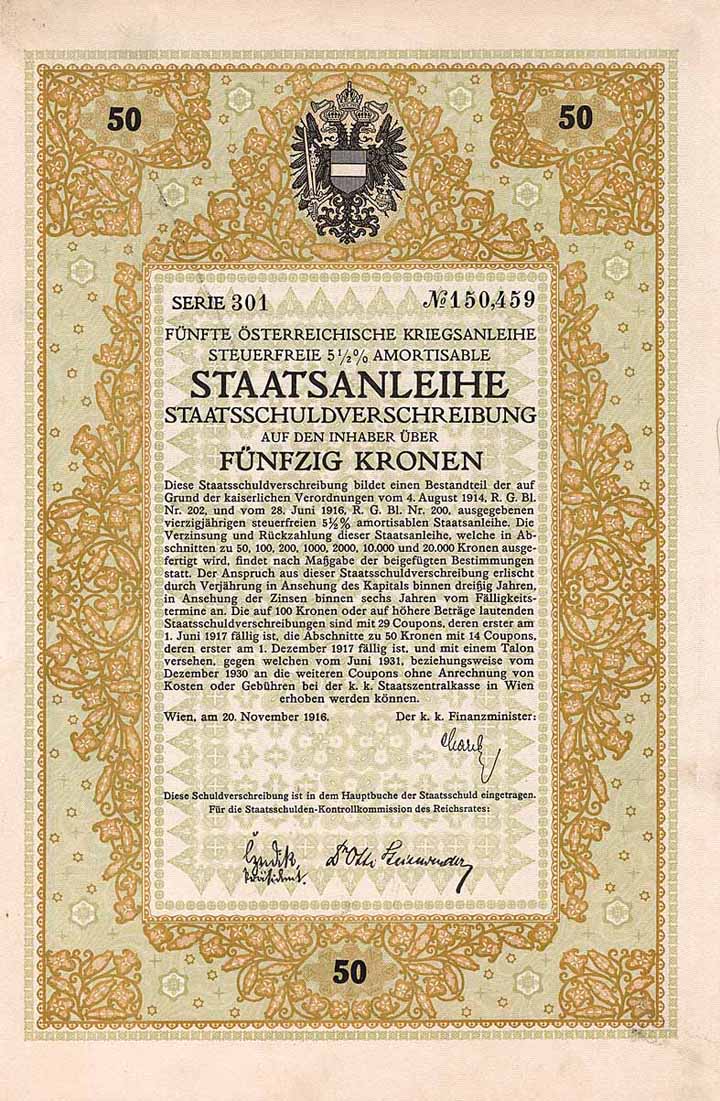 50
50
SERIE 301 № 150,459
FÜNFTE ÖSTERREICHISCHE KRIEGSANLEIHE
STEUERFREIE 5½% AMORTISABLE
STAATSANLEIHE
STAATSSCHULDVERSCHREIBUNG
AUF DEN INHABER ÜBER
FÜNFZIG KRONEN
Diese Staatsschuldverschreibung bildet einen Bestandteil der auf
Grund der kaiserlichen Verordnungen vom 4. August 1914, R. G. Bl.
Nr. 202, und vom 28. Juni 1916, R. G. Bl. Nr. 200, ausgegebenen
vierzigjährigen steuerfreien 5½% amortisablen Staatsanleihe. Die
Verzinsung und Rückzahlung dieser Staatsanleihe, welche in Ab-
schnitten zu 50, 100, 200, 1000, 2000, 10.000 und 20.000 Kronen ausge-
fertigt wird, findet nach Maßgabe der beigefügten Bestimmungen
statt. Der Anspruch aus dieser Staatsschuldverschreibung erlischt
durch Verjährung in Ansehung des Kapitals binnen dreißig Jahren,
in Ansehung der Zinsen binnen sechs Jahren vom Fälligkeits-
termine an. Die auf 100 Kronen oder auf höhere Beträge lautenden
Staatsschuldverschreibungen sind mit 29 Coupons, deren erster am
1. Juni 1917 fällig ist, die Abschnitte zu 50 Kronen mit 14 Coupons,
deren erster am 1. Dezember 1917 fällig ist, und mit einem Talon
versehen, gegen welchen vom Juni 1931, beziehungsweise vom
Dezember 1930 an die weiteren Coupons ohne Anrechnung von
Kosten oder Gebühren bei der k. k. Staatszentralkasse in Wien
erhoben werden können.
Wien, am 20. November 1916. Der k. k. Finanzminister:
Diese Schuldverschreibung ist in dem Hauptbuche der Staatsschuld eingetragen.
Für die Staatsschulden-Kontrollkommission des Reichsrates:
Präsident. Dr Otto Steinwender
50